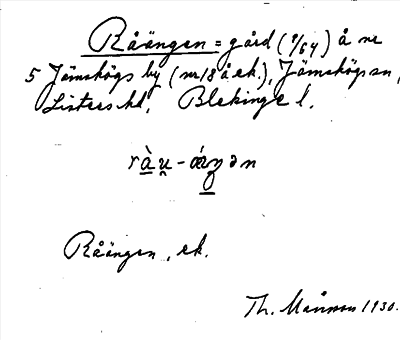 Råängen = gård (9/64) å nr
5 Jämshögs by (nr 18 å ek.), Jämshögs sn,
Listers hd, Blekinge l.
ràu̯-áŋən
Råängen, ek.
Th. 1930.